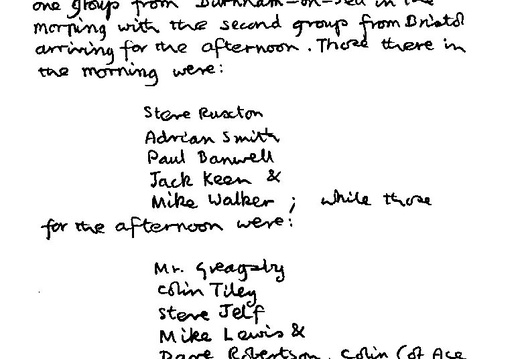 one group from Burnham-on-Sea in the
morning with the second group from Bristol
arriving for the afternoon. Those there in
the morning were:
Steve Ruxton
Adrian Smith
Paul Banwell
Jack Keen &
Mike Walker ; while those
for the afternoon were:
Mr. Greagsby
Colin Tiley
Steve Jelf
Mike Lewis &
Dave Robertson, Colin (of Ace